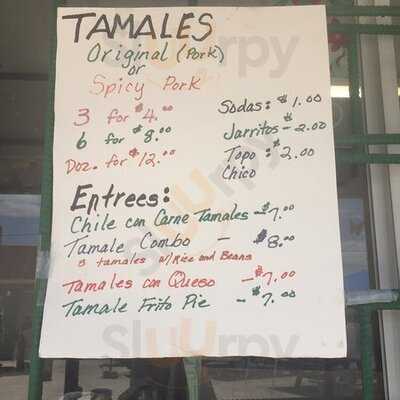 TAMALES
Original (Pork)
or
Spicy Pork
3 for $4.00
6 for $8.00
Doz. for $12.00
Sodas: $1.00
Jarritos - 2.00
Topo: $2.00
Chico
Entrees:
Chile con Carne Tamales - $7.00
Tamale Combo - $8.00
3 tamales w/Rice and Beans
Tamales con Queso - $7.00
Tamale Frito Pie - $7.00
Sluurpy
Sluurpy
Sluurpy